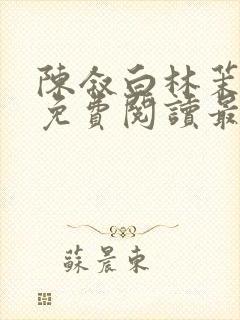 陳敘白林茉
免費閱讀最
蘇晨東